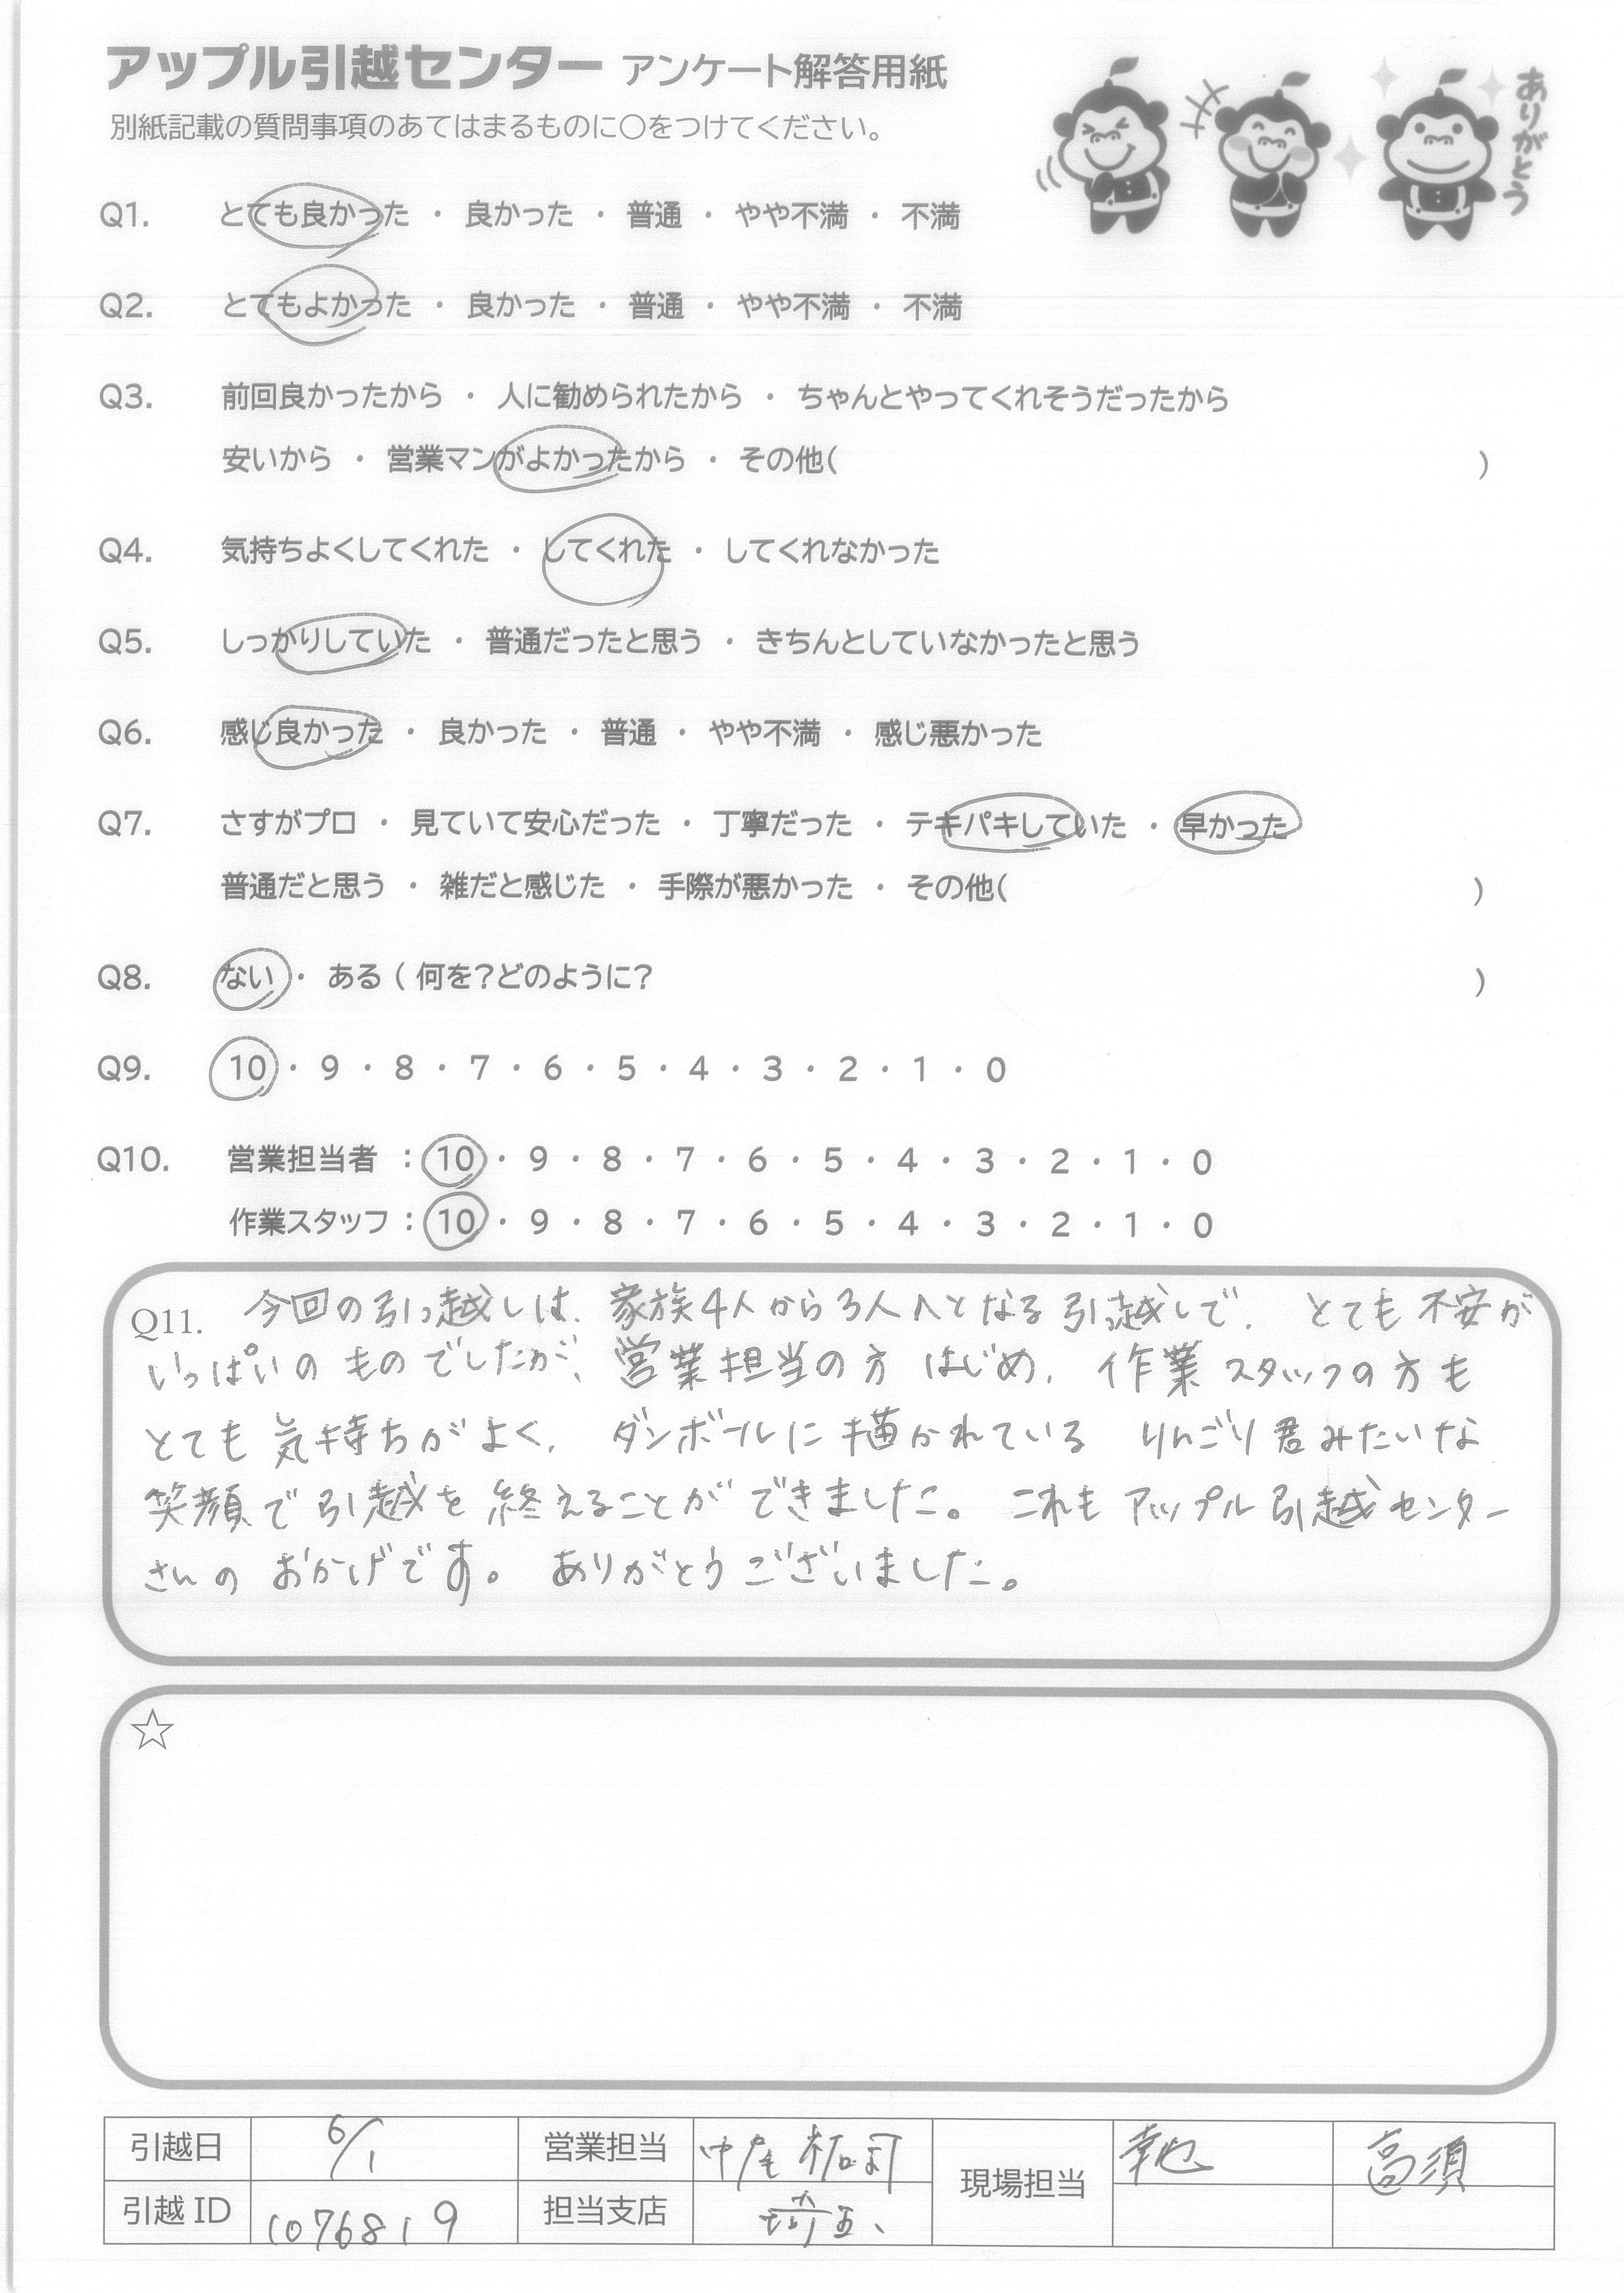 アップル引越センター アンケート解答用紙
ありがとう
別紙記載の質問事項のあてはまるものに○をつけてください。
Q1. とても良かった ・ 良かった ・ 普通 ・ やや不満 ・ 不満
Q2. とてもよかった ・ 良かった ・ 普通 ・ やや不満 ・ 不満
Q3. 前回良かったから ・ 人に勧められたから ・ ちゃんとやってくれそうだったから
安いから ・ 営業マンがよかったから ・ その他( )
Q4. 気持ちよくしてくれた ・ してくれた ・ してくれなかった
Q5. しっかりしていた ・ 普通だったと思う ・ きちんとしていなかったと思う
Q6. 感じ良かった ・ 良かった ・ 普通 ・ やや不満 ・ 感じ悪かった
Q7. さすがプロ ・ 見ていて安心だった ・ 丁寧だった ・ テキパキしていた ・ 早かった
普通だと思う ・ 雑だと感じた ・ 手際が悪かった ・ その他( )
Q8. ない ・ ある ( 何を?どのように? )
Q9. 10 ・ 9 ・ 8 ・ 7 ・ 6 ・ 5 ・ 4 ・ 3 ・ 2 ・ 1 ・ 0
Q10. 営業担当者 : 10 ・ 9 ・ 8 ・ 7 ・ 6 ・ 5 ・ 4 ・ 3 ・ 2 ・ 1 ・ 0
作業スタッフ : 10 ・ 9 ・ 8 ・ 7 ・ 6 ・ 5 ・ 4 ・ 3 ・ 2 ・ 1 ・ 0
Q11. 今回の引っ越しは、家族4人から3人へとなる引っ越しで、とても不安が
いっぱいのものでしたが、営業担当の方はじめ、作業スタッフの方も
とても気持ちがよく、ダンボールに描かれている りんごり君みたいな
笑顔で引越を終えることができました。これもアップル引越センター
さんのおかげです。ありがとうございました。
☆
引越日 6/1 営業担当 中尾 現場担当 幸地 高須
引越ID 1076819 担当支店 埼玉